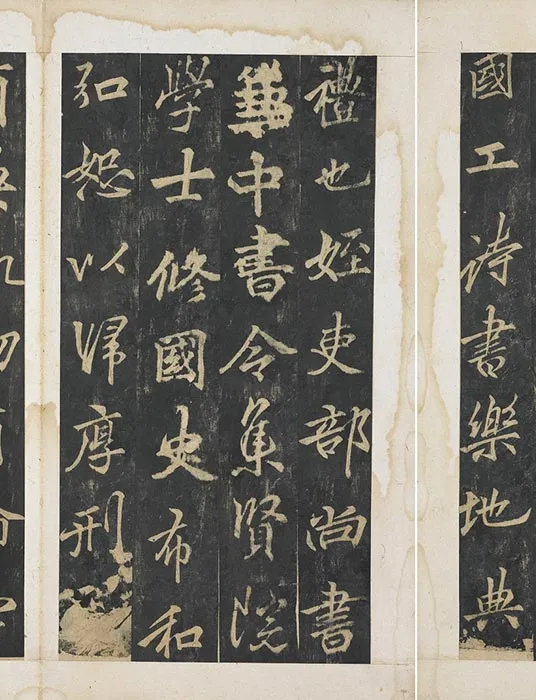 國工詩書樂地典
禮也姪吏部尚書
兼中書令集賢院
學士修國史布和
弘恕以歸厚刑